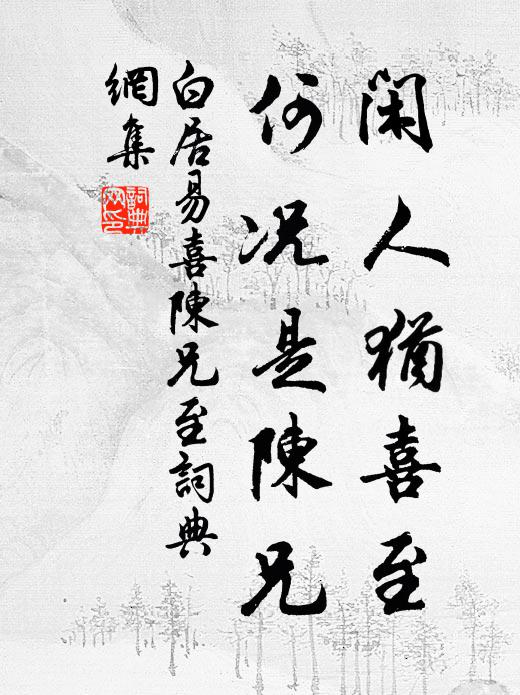 閑人猶喜至
何況是陳兄
白居易喜陳兄至詞典
網集
詞典网印